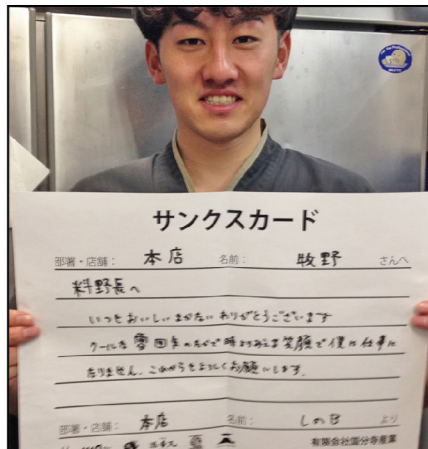 サンクスカード
部署・店舗： 本店 名前： 牧野 さんへ
料野長へ
いつもおいしいまかないありがとうございます
クールな雰囲気のなかで時よりみえる笑顔で僕は仕事に
なりません。これからもよろしくお願いします。
部署・店舗： 本店 名前： しの田 より
有限会社国分寺産業